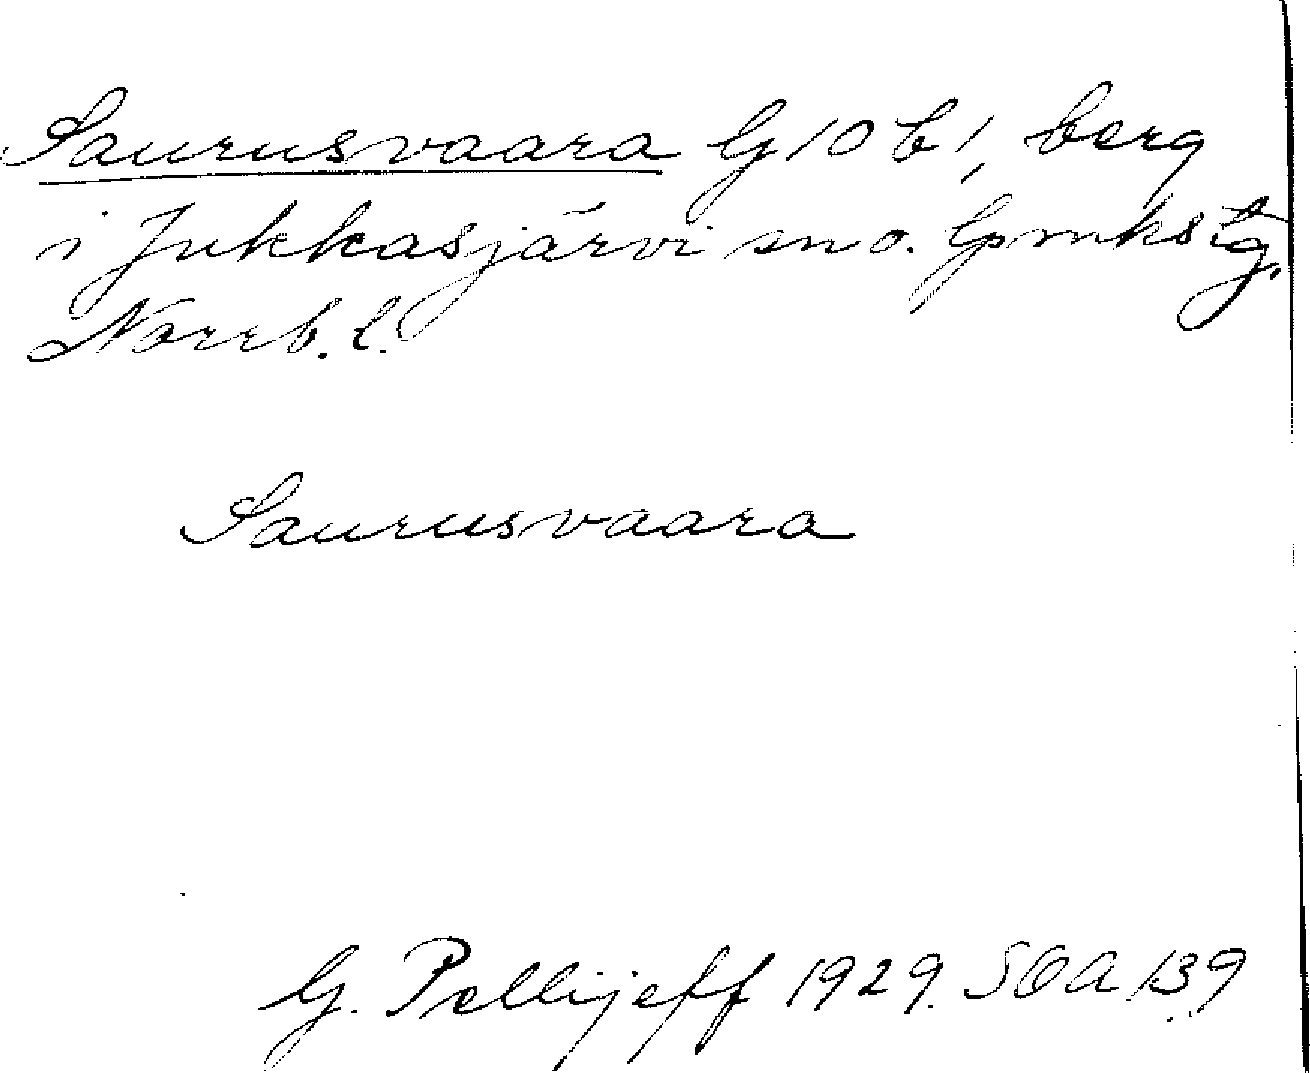 Saurusvaara G 10 b 1, berg
i Jukkasjärvi sn o. lpmkstg,
Norrb. l.
Saurusvaara
G. Pellijeff 1929. SOA 139